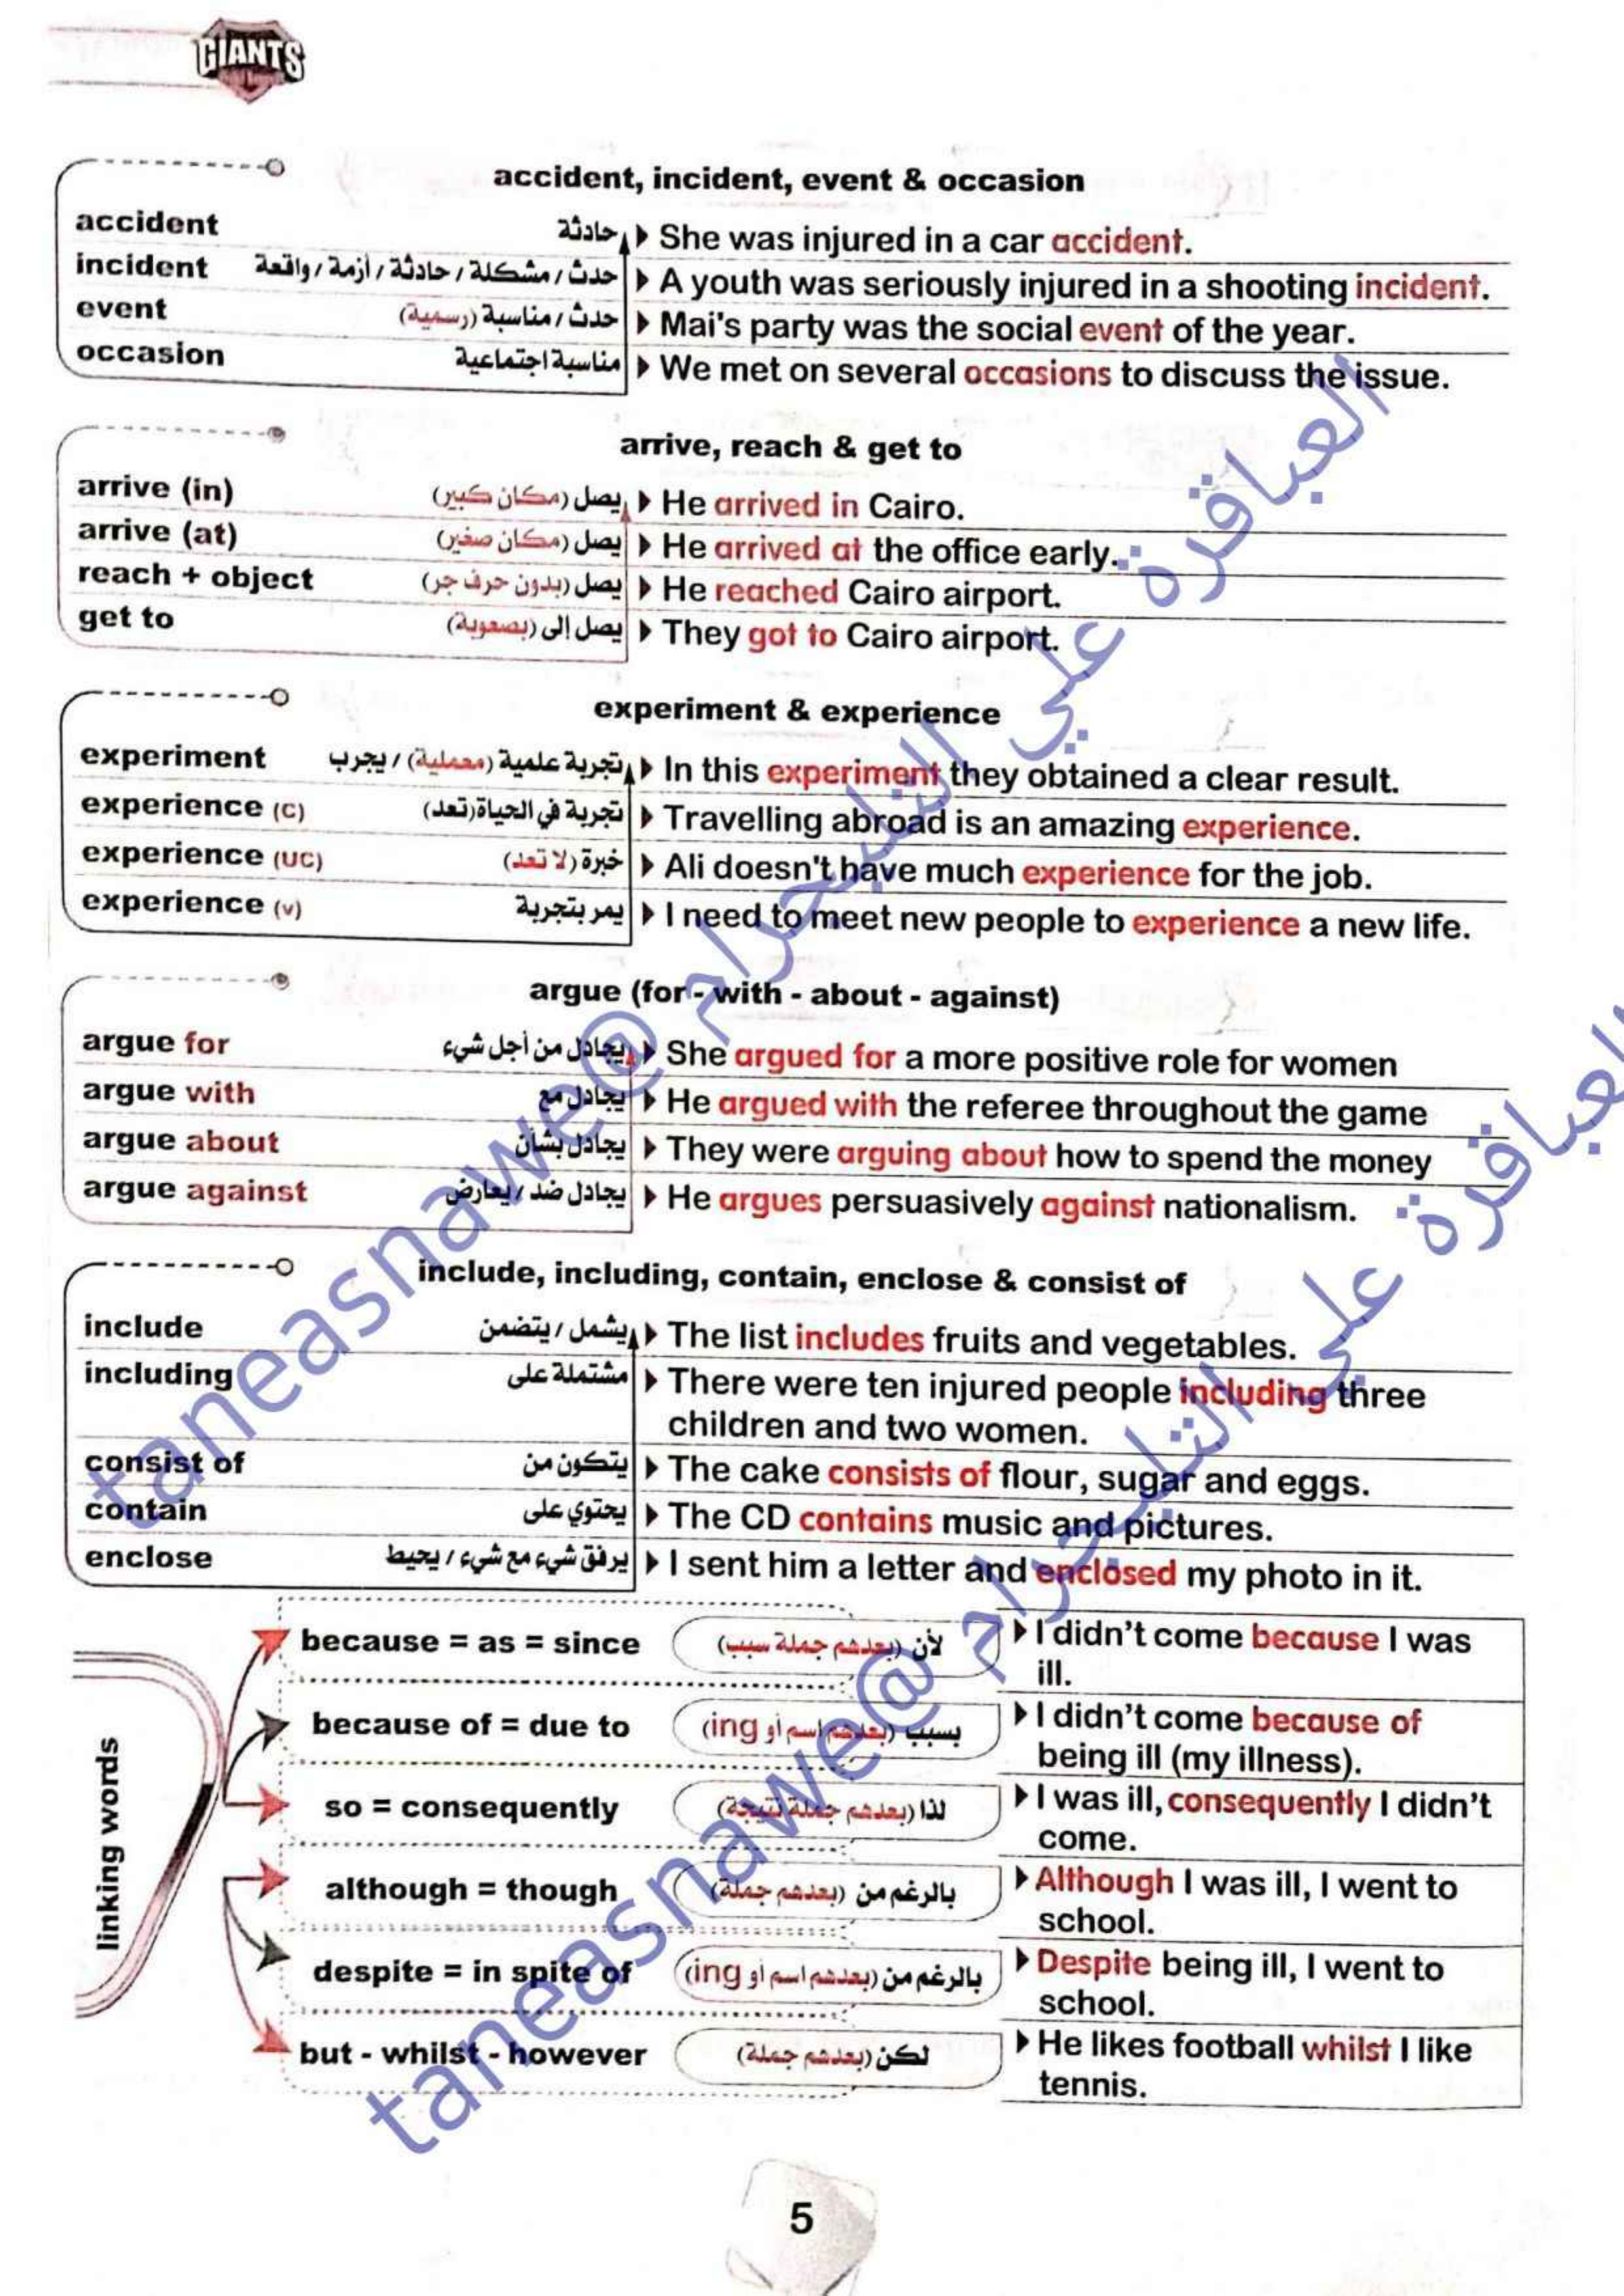 GIANTS
accident, incident, event & occasion
accident حادثة ▶ She was injured in a car accident.
incident حدث / مشكلة / حادثة / أزمة / واقعة ▶ A youth was seriously injured in a shooting incident.
event حدث / مناسبة (رسمية) ▶ Mai's party was the social event of the year.
occasion مناسبة اجتماعية ▶ We met on several occasions to discuss the issue.
arrive, reach & get to
arrive (in) يصل (مكان كبير) ▶ He arrived in Cairo.
arrive (at) يصل (مكان صغير) ▶ He arrived at the office early.
reach + object يصل (بدون حرف جر) ▶ He reached Cairo airport.
get to يصل إلى (بصعوبة) ▶ They got to Cairo airport.
experiment & experience
experiment تجربة علمية (معملية) / يجرب ▶ In this experiment they obtained a clear result.
experience (C) تجربة في الحياة (تعد) ▶ Travelling abroad is an amazing experience.
experience (UC) خبرة (لا تعد) ▶ Ali doesn't have much experience for the job.
experience (v) يمر بتجربة ▶ I need to meet new people to experience a new life.
argue (for - with - about - against)
argue for يجادل من أجل شيء ▶ She argued for a more positive role for women
argue with يجادل مع ▶ He argued with the referee throughout the game
argue about يجادل بشأن ▶ They were arguing about how to spend the money
argue against يجادل ضد / يعارض ▶ He argues persuasively against nationalism.
include, including, contain, enclose & consist of
include يشمل / يتضمن ▶ The list includes fruits and vegetables.
including مشتملة على ▶ There were ten injured people including three
children and two women.
consist of يتكون من ▶ The cake consists of flour, sugar and eggs.
contain يحتوي على ▶ The CD contains music and pictures.
enclose يرفق شيء مع شيء / يحيط ▶ I sent him a letter and enclosed my photo in it.
linking words
because = as = since لأن (بعدهم جملة سبب) ▶ I didn't come because I was
ill.
because of = due to بسبب (بعدهم اسم أو ing) ▶ I didn't come because of
being ill (my illness).
so = consequently لذا (بعدهم جملة نتيجة) ▶ I was ill, consequently I didn't
come.
although = though بالرغم من (بعدهم جملة) ▶ Although I was ill, I went to
school.
despite = in spite of بالرغم من (بعدهم اسم أو ing) ▶ Despite being ill, I went to
school.
but - whilst - however لكن (بعدهم جملة) ▶ He likes football whilst I like
tennis.
5
العباقرة علي التليجرام @taneasnawe
العباقرة علي التليجرام @taneasnawe